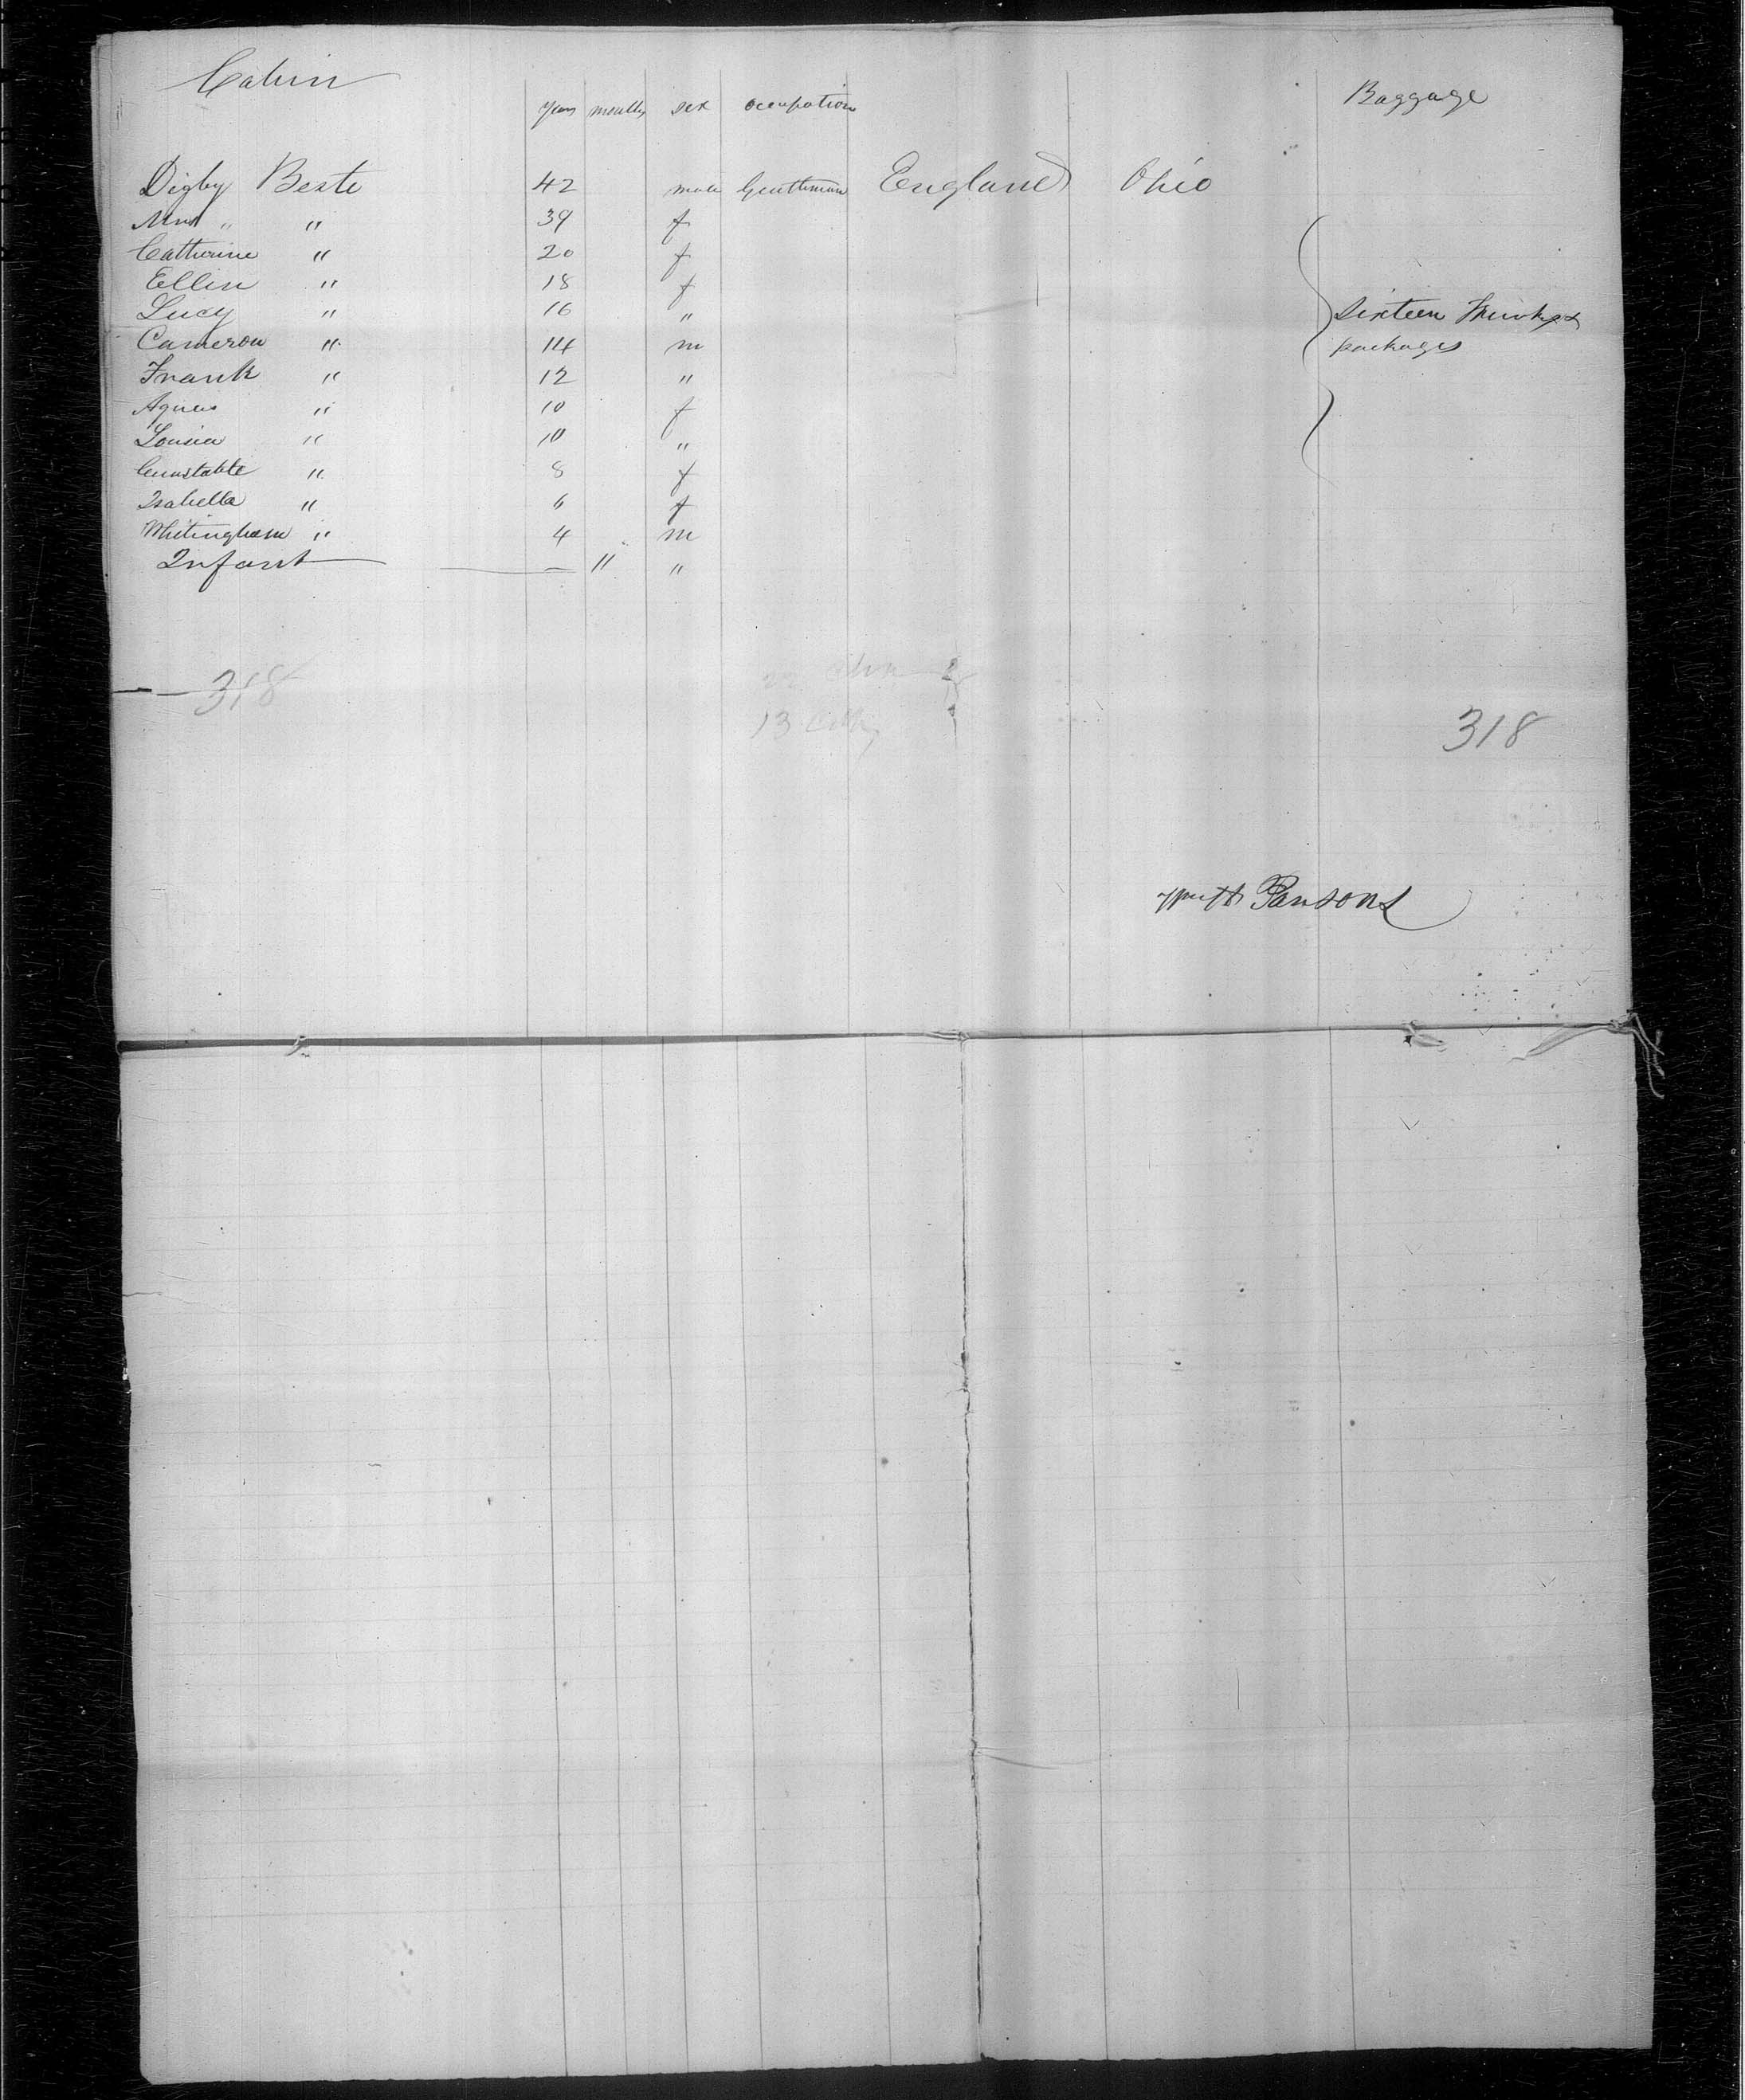 Cabin
years months sex occupation Baggage
Digby Beste 42 male Gentleman England Ohio
Mrs " " 39 f
Catherine " 20 f
Ellen " 18 f
Lucy " 16 "
Cameron " 14 m
Frank " 12 "
Agnes " 10 f
Louisa " 10 "
Cunstable " 8 f
Isabella " 6 f
Whitingham " 4 m
Infant — 11 "
Sixteen Trunks &
packages
318
13
318
Parsons